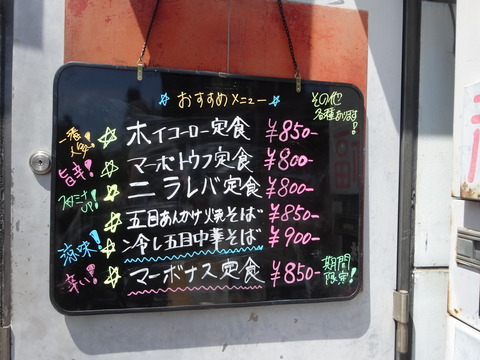 ☆おすすめメニュー☆
その他
各種あります!
一番人気! ☆ ホイコーロー定食 ¥850-
旨辛! ☆ マーボトウフ定食 ¥800-
スタミナUP! ☆ ニラレバ定食 ¥800-
五目あんかけ焼そば ¥850-
涼味! ☆ 冷し五目中華そば ¥900-
辛い! ☆ マーボナス定食 ¥850-
期間
限定!